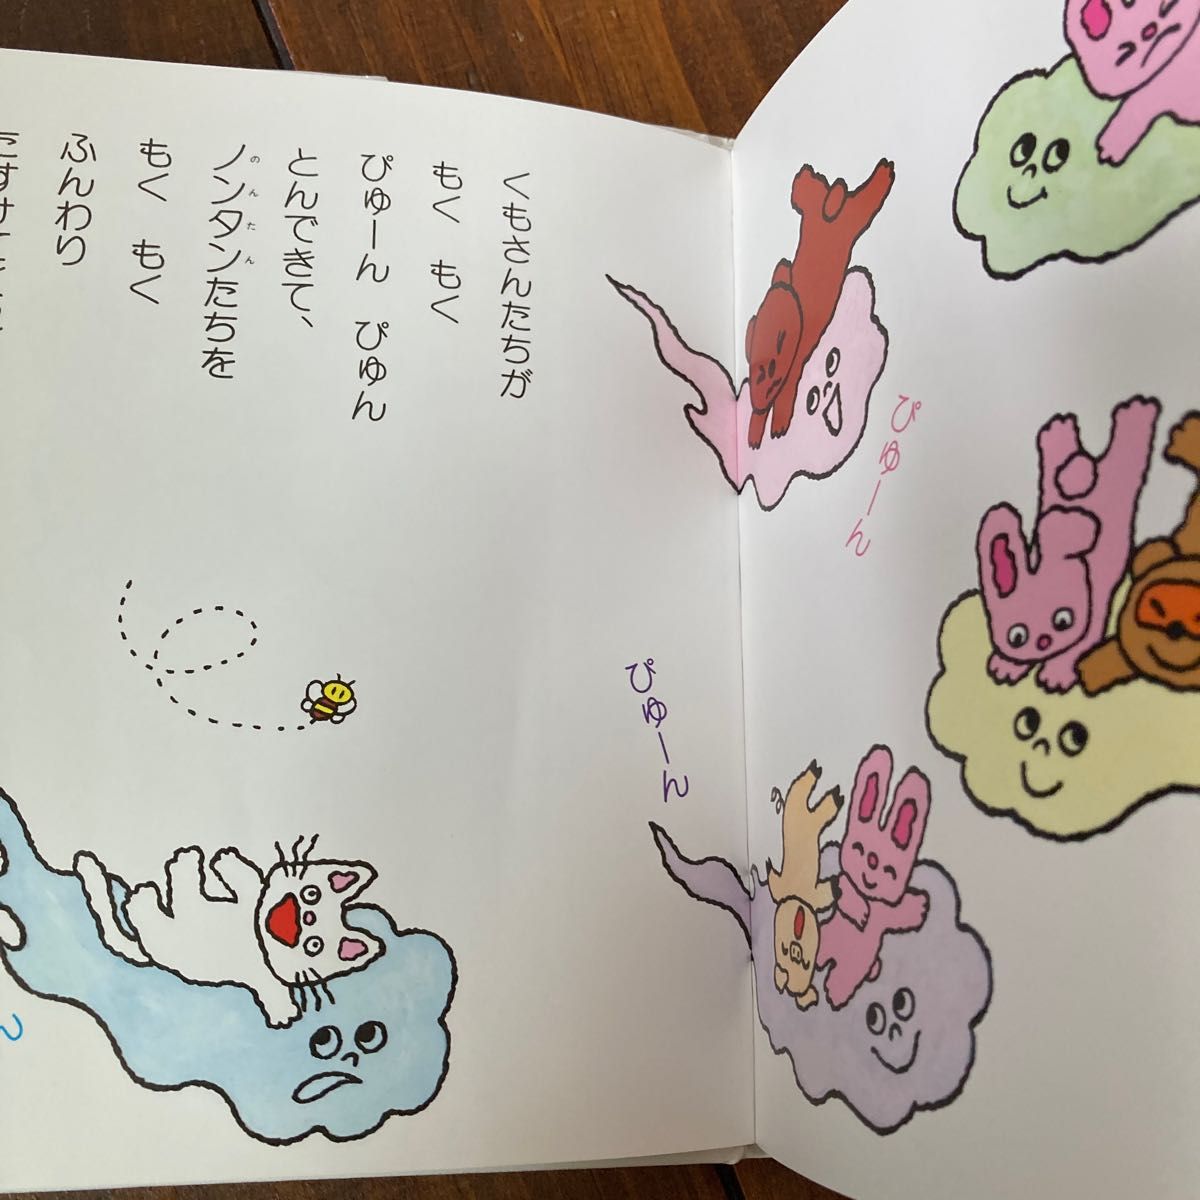 くもさんたちが
もく もく
ぴゅーん ぴゅん
とんできて、
ノンタンたちを
のんたん
もく もく
ふんわり
ぴゅーん
ぴゅーん